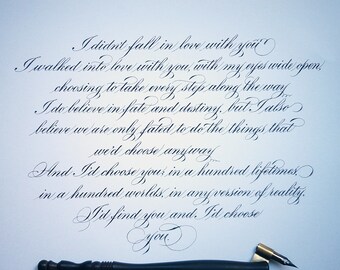 I didn't fall in love with you
I walked into love with you, with my eyes wide open,
choosing to take every step along the way
I do believe in fate and destiny, but I also
believe we are only fated to do the things that
we'd choose anyway
And I'd choose you; in a hundred lifetimes,
in a hundred worlds, in any version of reality,
I'd find you and I'd choose
you.